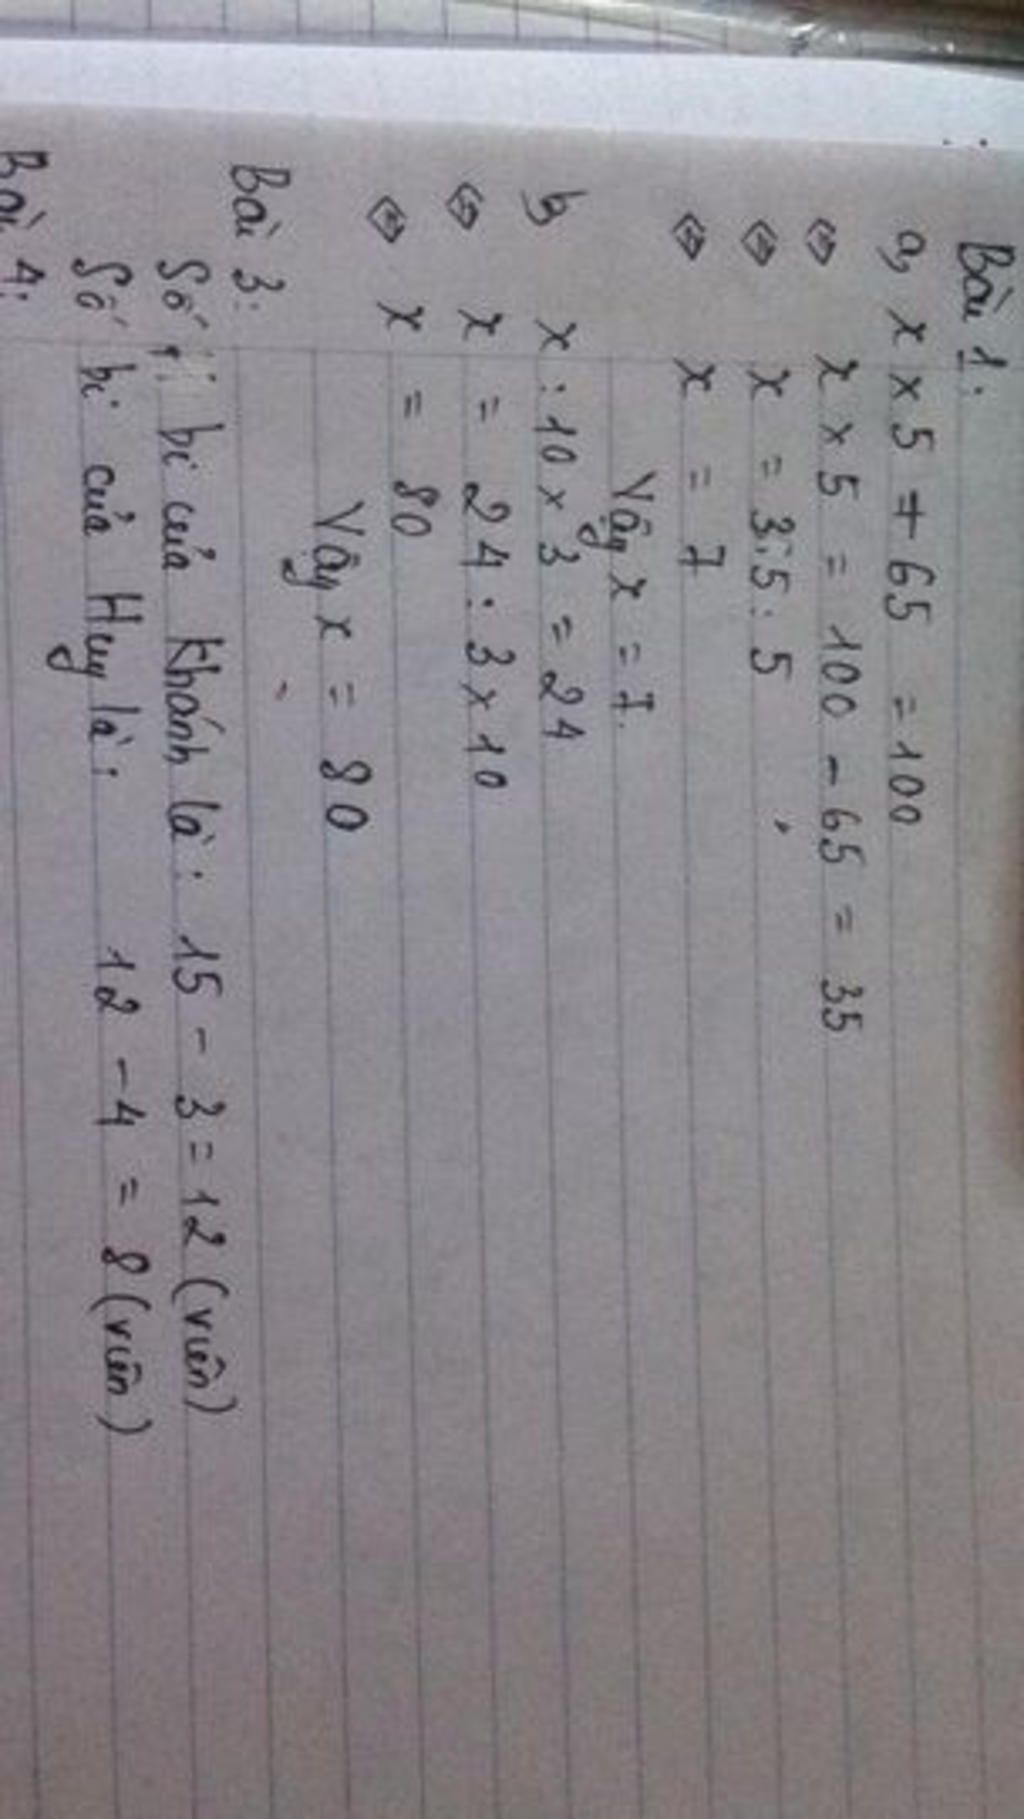 Bài 1:
a, x × 5 + 65 = 100
⇔ x × 5 = 100 - 65 = 35
⇔ x = 35 : 5
⇔ x = 7
Vậy x = 7.
b, x : 10 × 3 = 24
⇔ x = 24 : 3 × 10
⇔ x = 80
Vậy x = 80
Bài 3:
Số bi của Khánh là: 15 - 3 = 12 (viên)
Số bi của Huy là: 12 - 4 = 8 (viên)
Bài 4: